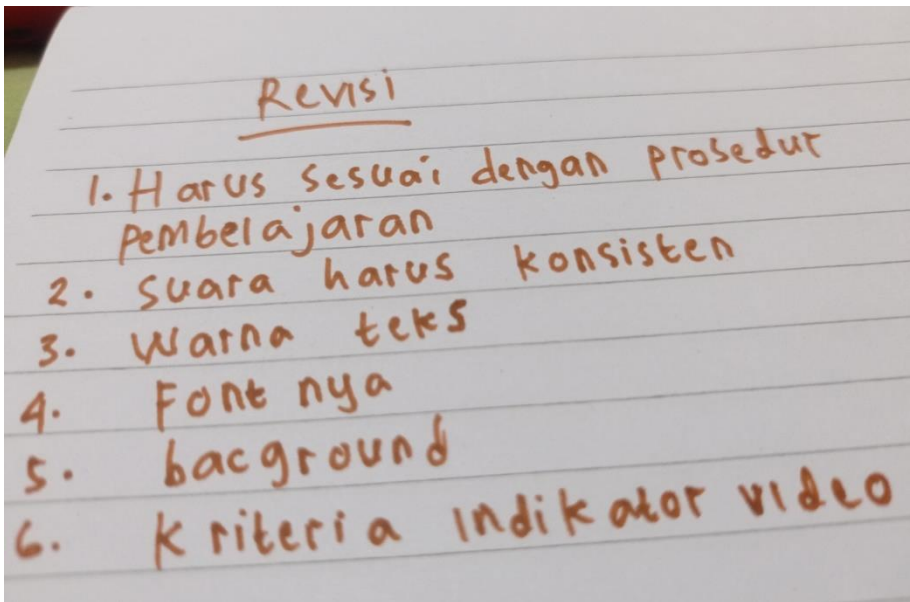 Revisi
1. Harus sesuai dengan prosedur
pembelajaran
2. suara harus konsisten
3. warna teks
4. Font nya
5. bacground
6. kriteria indikator video